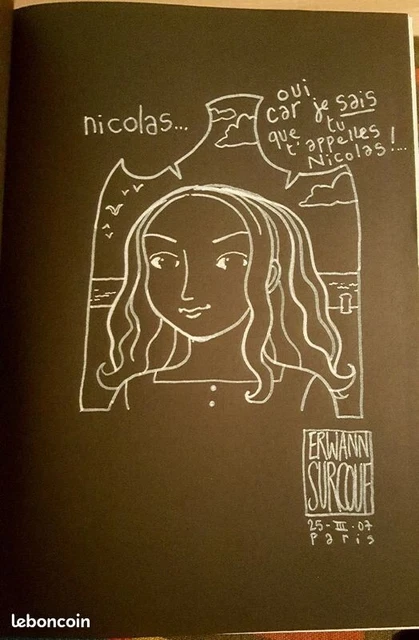 nicolas...
oui
car je sais
que tu
t'appelles
Nicolas!...
ERWANN
SURCOUF
25-III.07
Paris
leboncoin